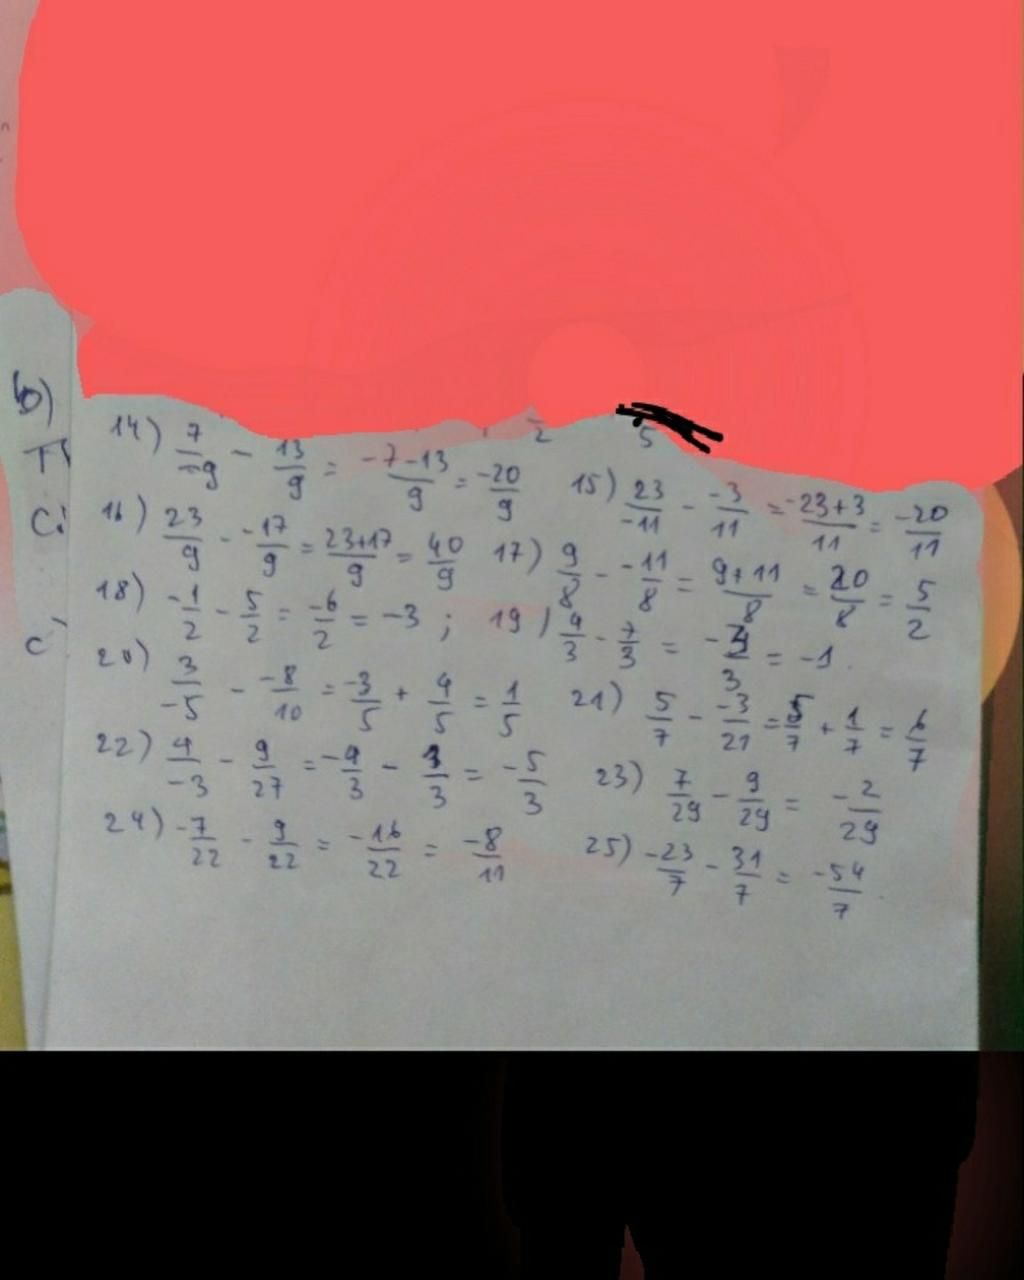 2 5
b)
14) 7/-9 - 13/9 = -7-13/9 = -20/9 15) 23/-11 - -3/11 = -23+3/11 = -20/11
Ci
16) 23/9 - -17/9 = 23+17/9 = 40/9 17) 9/8 - -11/8 = 9+11/8 = 20/8 = 5/2
18) -1/2 - 5/2 = -6/2 = -3 ; 19) 4/3 - 7/3 = -3/3 = -1.
20) 3/-5 - -8/10 = -3/5 + 4/5 = 1/5 21) 5/7 - -3/21 = 5/7 + 1/7 = 6/7
22) 4/-3 - 9/27 = -4/3 - 1/3 = -5/3 23) 7/29 - 9/29 = -2/29
24) -7/22 - 9/22 = -16/22 = -8/11 25) -23/7 - 31/7 = -54/7.